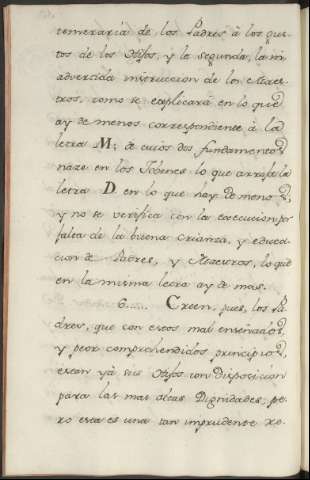 temeraria de los Padres à los gus-
tos de los Hijos, y la segunda, la in-
advertida instruccion de los Maes-
tros, como se explicará en lo que
ay de menos correspondiente à la
letra M; de cuios dos fundamentos
naze en los Jobenes lo que arrastra la
letra D en lo que hay de menos,
y no se verifica con la execucion por
falta de la buena crianza, y educa-
cion de Padres, y Maestros, lo que
en la misma letra ay de mas.
6.... Creen, pues, los Pa-
dres, que con estos mal enseñados,
y peor comprehendidos principios,
estan yà sus Hijos con disposicion
para las mas altas Dignidades, pe-
ro esta es una tan imprudente re-